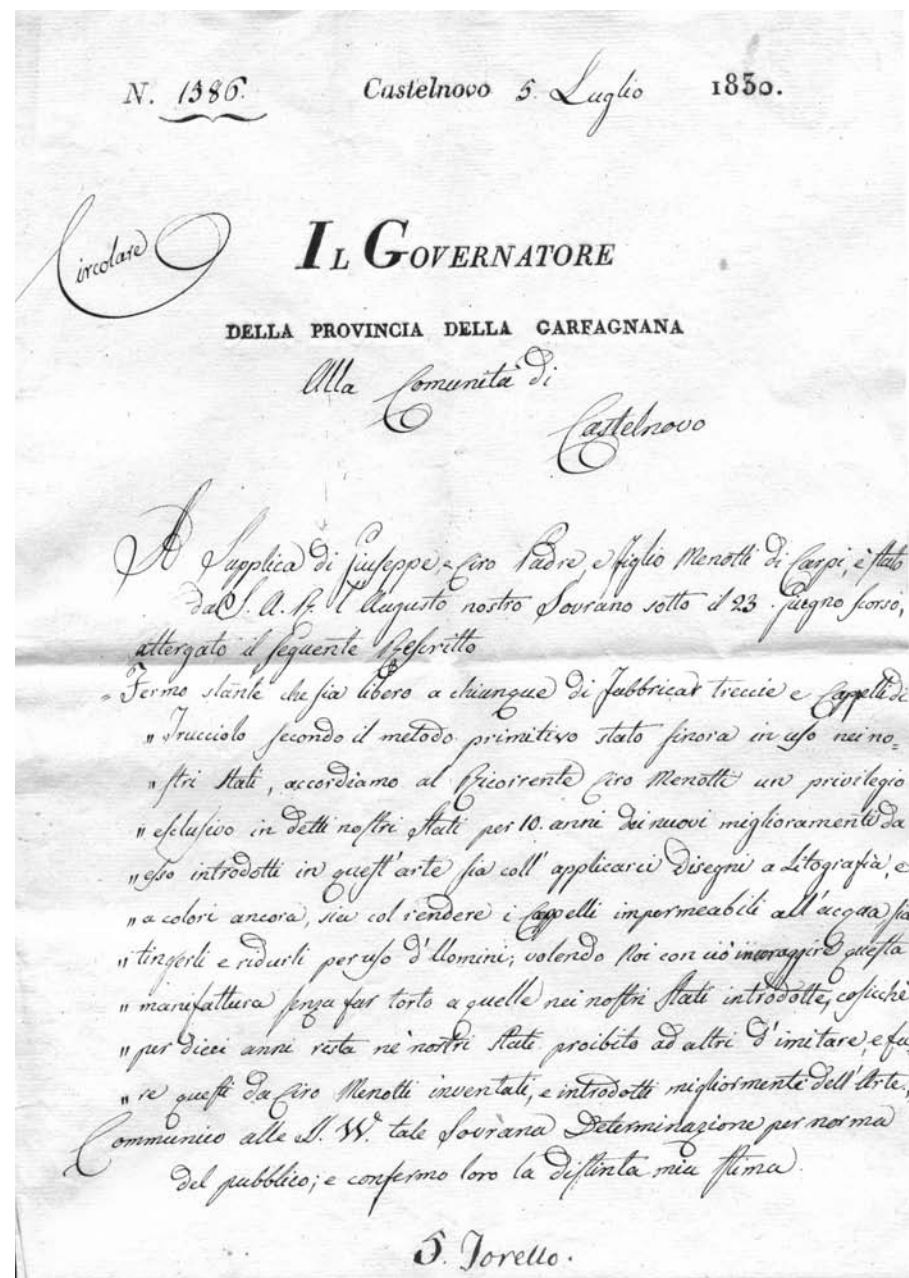 N. 1386. Castelnovo 5. Luglio 1830.
Circolare
IL GOVERNATORE
DELLA PROVINCIA DELLA GARFAGNANA
Alla Comunità di
Castelnovo
A Supplica di Giuseppe, e Ciro Padre, e figlio Menotti di Carpi, è stato
dal S. A. R. l'Augusto nostro Sovrano sotto il 23. Giugno scorso,
attergato il seguente Rescritto
"Fermo stante che sia libero a chiunque di fabbricar treccie e Cappelli di
"Trucciolo secondo il metodo primitivo stato finora in uso nei no=
"stri Stati, accordiamo al Ricorrente Ciro Menotti un privilegio
"esclusivo in detti nostri Stati per 10. anni dei nuovi miglioramenti da
"esso introdotti in quest'arte sia coll'applicarci Disegni a Litografia, e
"a colori ancora, sia col rendere i Cappelli impermeabili all'acqua sia
"tingerli e ridurli per uso d'Uomini; volendo Noi con ciò incoraggire questa
"manifattura senza far torto a quelle nei nostri Stati introdotte, cosicchè
"per dieci anni resta nè nostri Stati proibito ad altri d'imitare, e fa=
"re questi da Ciro Menotti inventati, e introdotti migliormente dell'Arte.
Communico alle S. W. tale Sovrana Determinazione per norma
del pubblico; e confermo loro la distinta mia stima.
S. Torello.